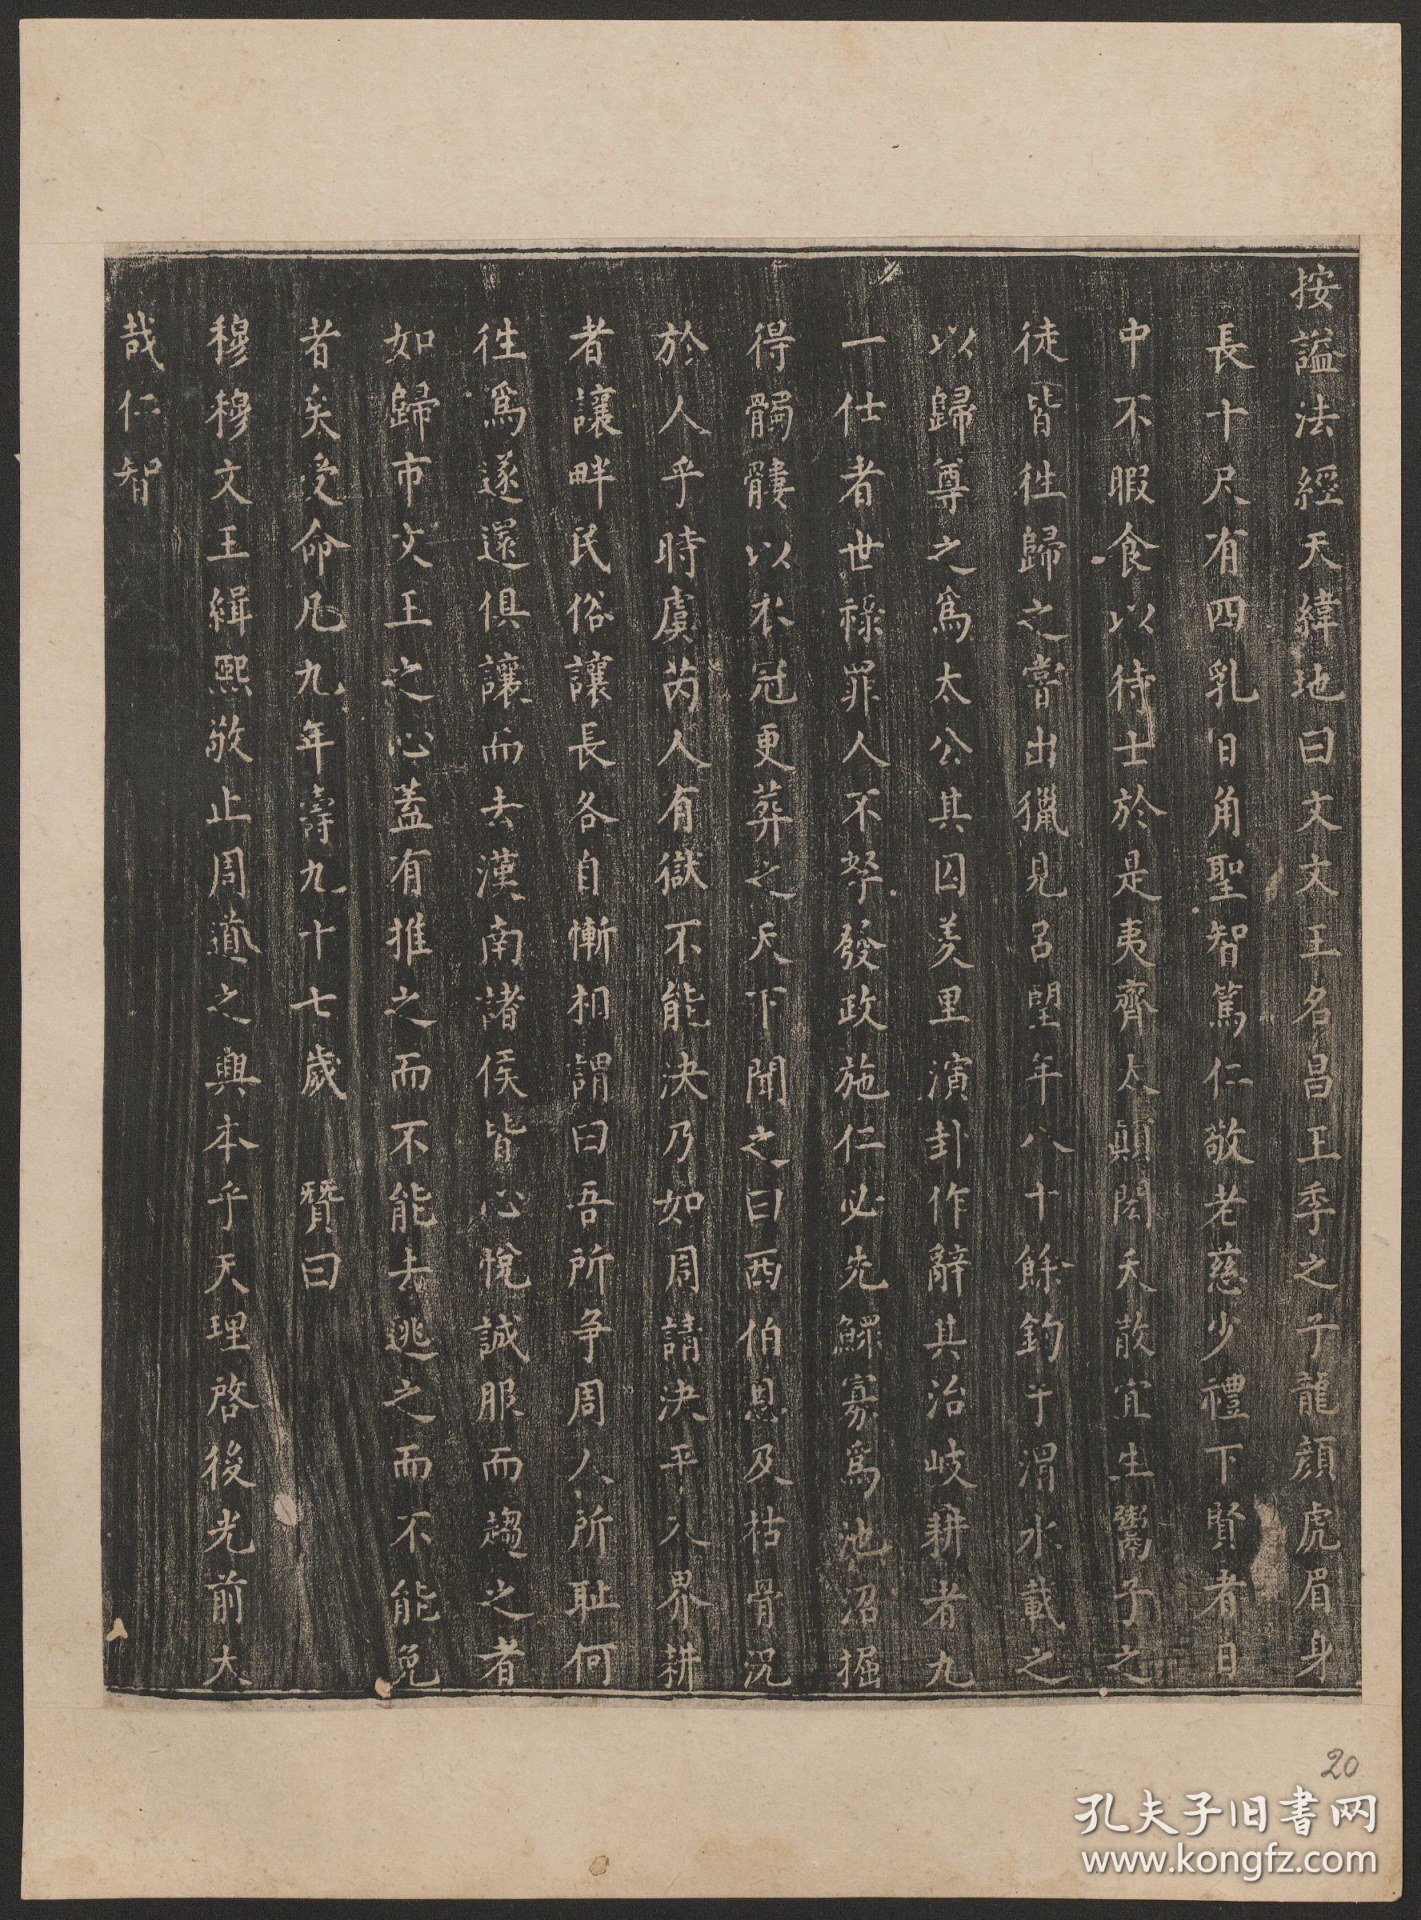 按謚法經天緯地曰文文王名昌王季之子龍顏虎眉身
長十尺有四乳日角聖智篤仁敬老慈少禮下賢者日
中不暇食以待士於是夷齊太顛閎夭散宜生鬻子之
徒皆徃歸之嘗出獵見呂望年八十餘釣于渭水載之
以歸尊之爲太公其囚羑里演卦作辭其治岐耕者九
一仕者世祿罪人不孥發政施仁必先鰥寡爲池沼掘
得髑髏以衣冠更葬之天下聞之曰西伯恩及枯骨況
於人乎時虞芮人有獄不能決乃如周請決平入界耕
者讓畔民俗讓長各自慚相謂曰吾所爭周人所耻何
徃爲遂還俱讓而去漢南諸侯皆心悅誠服而趨之者
如歸市文王之心蓋有推之而不能去逃之而不能免
者矣受命凡九年壽九十七歲 贊曰
穆穆文王緝熙敬止周道之興本乎天理啓後光前大
哉仁智
20
孔夫子旧書网
www.kongfz.com